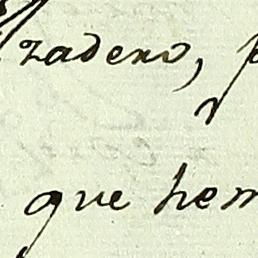 zadero,
que hem